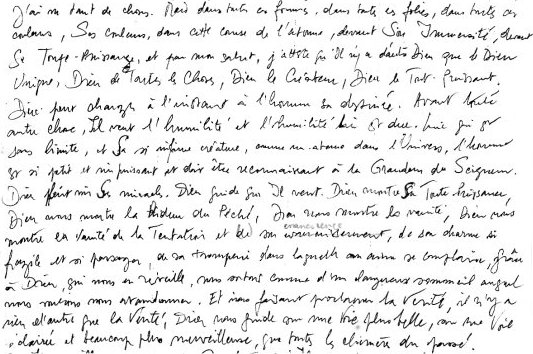 J'ai vu tant de choses. Mais dans toutes ces formes, dans toutes ces folies, dans toutes ces
couleurs, Ses couleurs, dans cette cause de l'atome, devant Son Immensité, devant
Sa Toute-Puissance, et par mon salut, j'atteste qu'Il n'y a d'autre Dieu que le Dieu
Unique, Dieu de Toutes les Choses, Dieu le Créateur, Dieu le Tout-Puissant,
Dieu peut changer à l'instant à l'homme sa destinée. Avant toute
autre chose, Il veut l'humilité et l'humilité lui est due. Lui qui est
sans limite, et Sa si infime créature, comme un atome dans l'Univers, l'homme
est si petit et impuissant et doit être reconnaissant à la Grandeur du Seigneur.
Dieu fait Ses miracles. Dieu guide qui Il veut. Dieu montre Sa Toute-Puissance,
Dieu nous montre la hideur du Péché, Dieu nous montre la vanité, Dieu nous
montre la vanité de la Tentation et de son évanouissement, de son charme si
fragile et si passager, de sa tromperie dans laquelle son âme se complaire, grâce
à Dieu, qui nous en réveille, nous sortons comme d'un dangereux sommeil auquel
nous nous abandonner. Et nous faisant proclamer la Vérité, il n'y a
rien d'autre que la Vérité, Dieu nous guide sur une voie plus belle, sur une Voie
éclairée et beaucoup plus merveilleuse, que toutes les chimères du passé.